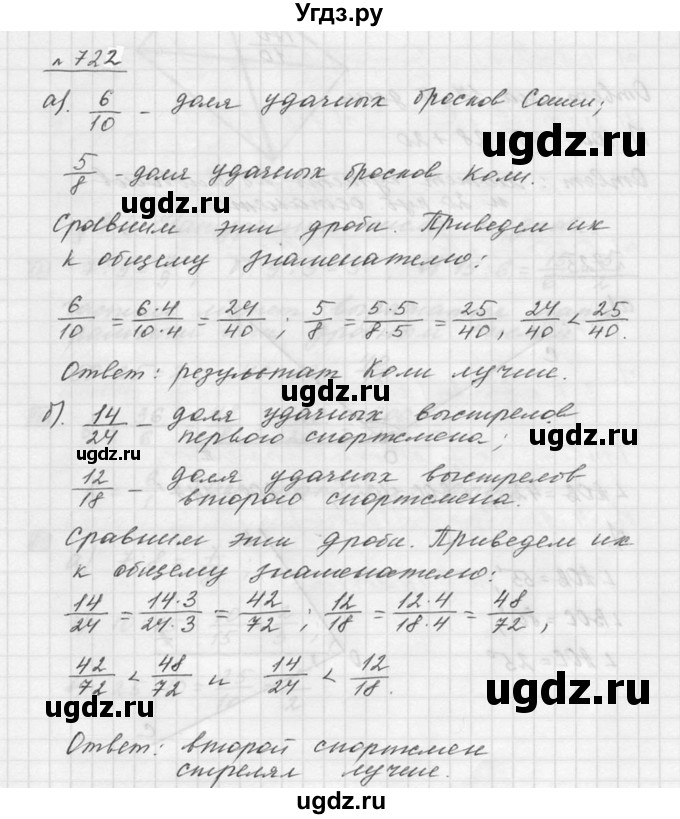 Угдз.ру
№ 722
а). 6/10 – доля удачных бросков Саши;
ugdz.ru
5/8 - доля удачных бросков Коли.
ugdz.ru
Сравним эти дроби. Приведем их
к общему знаменателю:
6/10 = 6·4/10·4 = 24/40 ; 5/8 = 5·5/8·5 = 25/40, 24/40 < 25/40.
Ответ: результат Коли лучше.
ugdz.ru
б). 14/24 – доля удачных выстрелов
первого спортсмена;
ugdz.ru
12/18 – доля удачных выстрелов
второго спортсмена.
ugdz.ru
Сравним эти дроби. Приведем их
к общему знаменателю:
14/24 = 14·3/24·3 = 42/72 ; 12/18 = 12·4/18·4 = 48/72,
42/72 < 48/72 и 14/24 < 12/18.
ugdz.ru
ugdz.ru
Ответ: второй спортсмен
стрелял лучше.
ugdz.ru
ugdz.ru